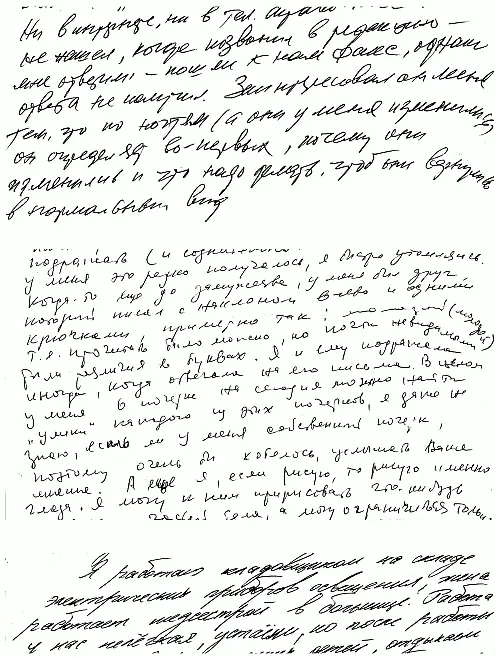 Ни в индиндe, ни в тел.
не нашел, когда позвонил в редакцию –
мне ответили – пошли к нам факс, однако
ответа не получил. Заинтересовал он меня
тем, что по ногтям (а они у меня изменились)
он определяет во-первых, почему они
изменились и что надо делать, чтобы они вернулись
в нормальный вид
подражать (и
у меня это редко получалось, я быстро утомлялась.
Когда-то еще до замужества, у меня был друг
который писал с наклоном влево и одними
крючками, примерно так:
т.е. прочитать было можно, но почти невидимыми
были различия в буквах. Я и ему подражала
иногда, когда отвечала на его письма. В целом
у меня в почерке на сегодня можно найти
"улики" каждого из этих почерков, я даже не
знаю, есть ли у меня собственный почерк,
поэтому очень бы хотелось, услышать Ваше
мнение. А ещё я, если рисую, то рисую именно
глаза. Я могу к ним пририсовать что-нибудь
тела, а могу ограничиться только
Я работаю кладовщиком на складе
электрических приборов освещения, жена
работает медсестрой в больнице. Работа
у нас нелёгкая, устаём, но после работы
детей, отдыхаем